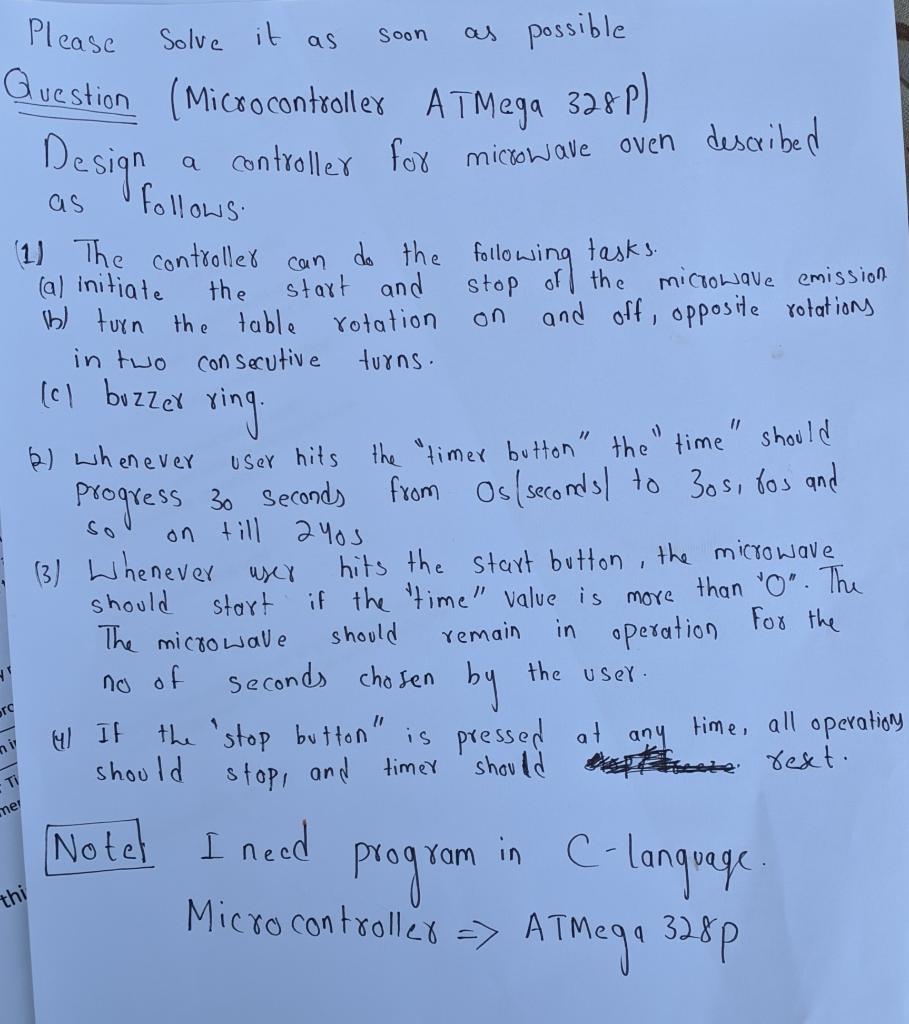 Please Solve it as soon as possible
Question (Microcontroller ATMega 328P)
Design a controller for microwave oven described
as follows.
(1) The controller can do the following tasks.
(a) initiate the start and stop of the microwave emission
(b) turn the table rotation on and off, opposite rotations
in two consecutive turns.
(c) buzzer ring.
(2) whenever user hits the "timer button" the "time" should
progress 30 seconds from 0s(seconds) to 30s, 60s and
so on till 240s
(3) Whenever user hits the start button, the microwave
should start if the "time" value is more than "0". The
The microwave should remain in operation for the
no of seconds chosen by the user.
(4) If the 'stop button" is pressed at any time, all operations
should stop, and timer should reset.
Note) I need program in C-language.
Microcontroller => ATMega 328p
thi